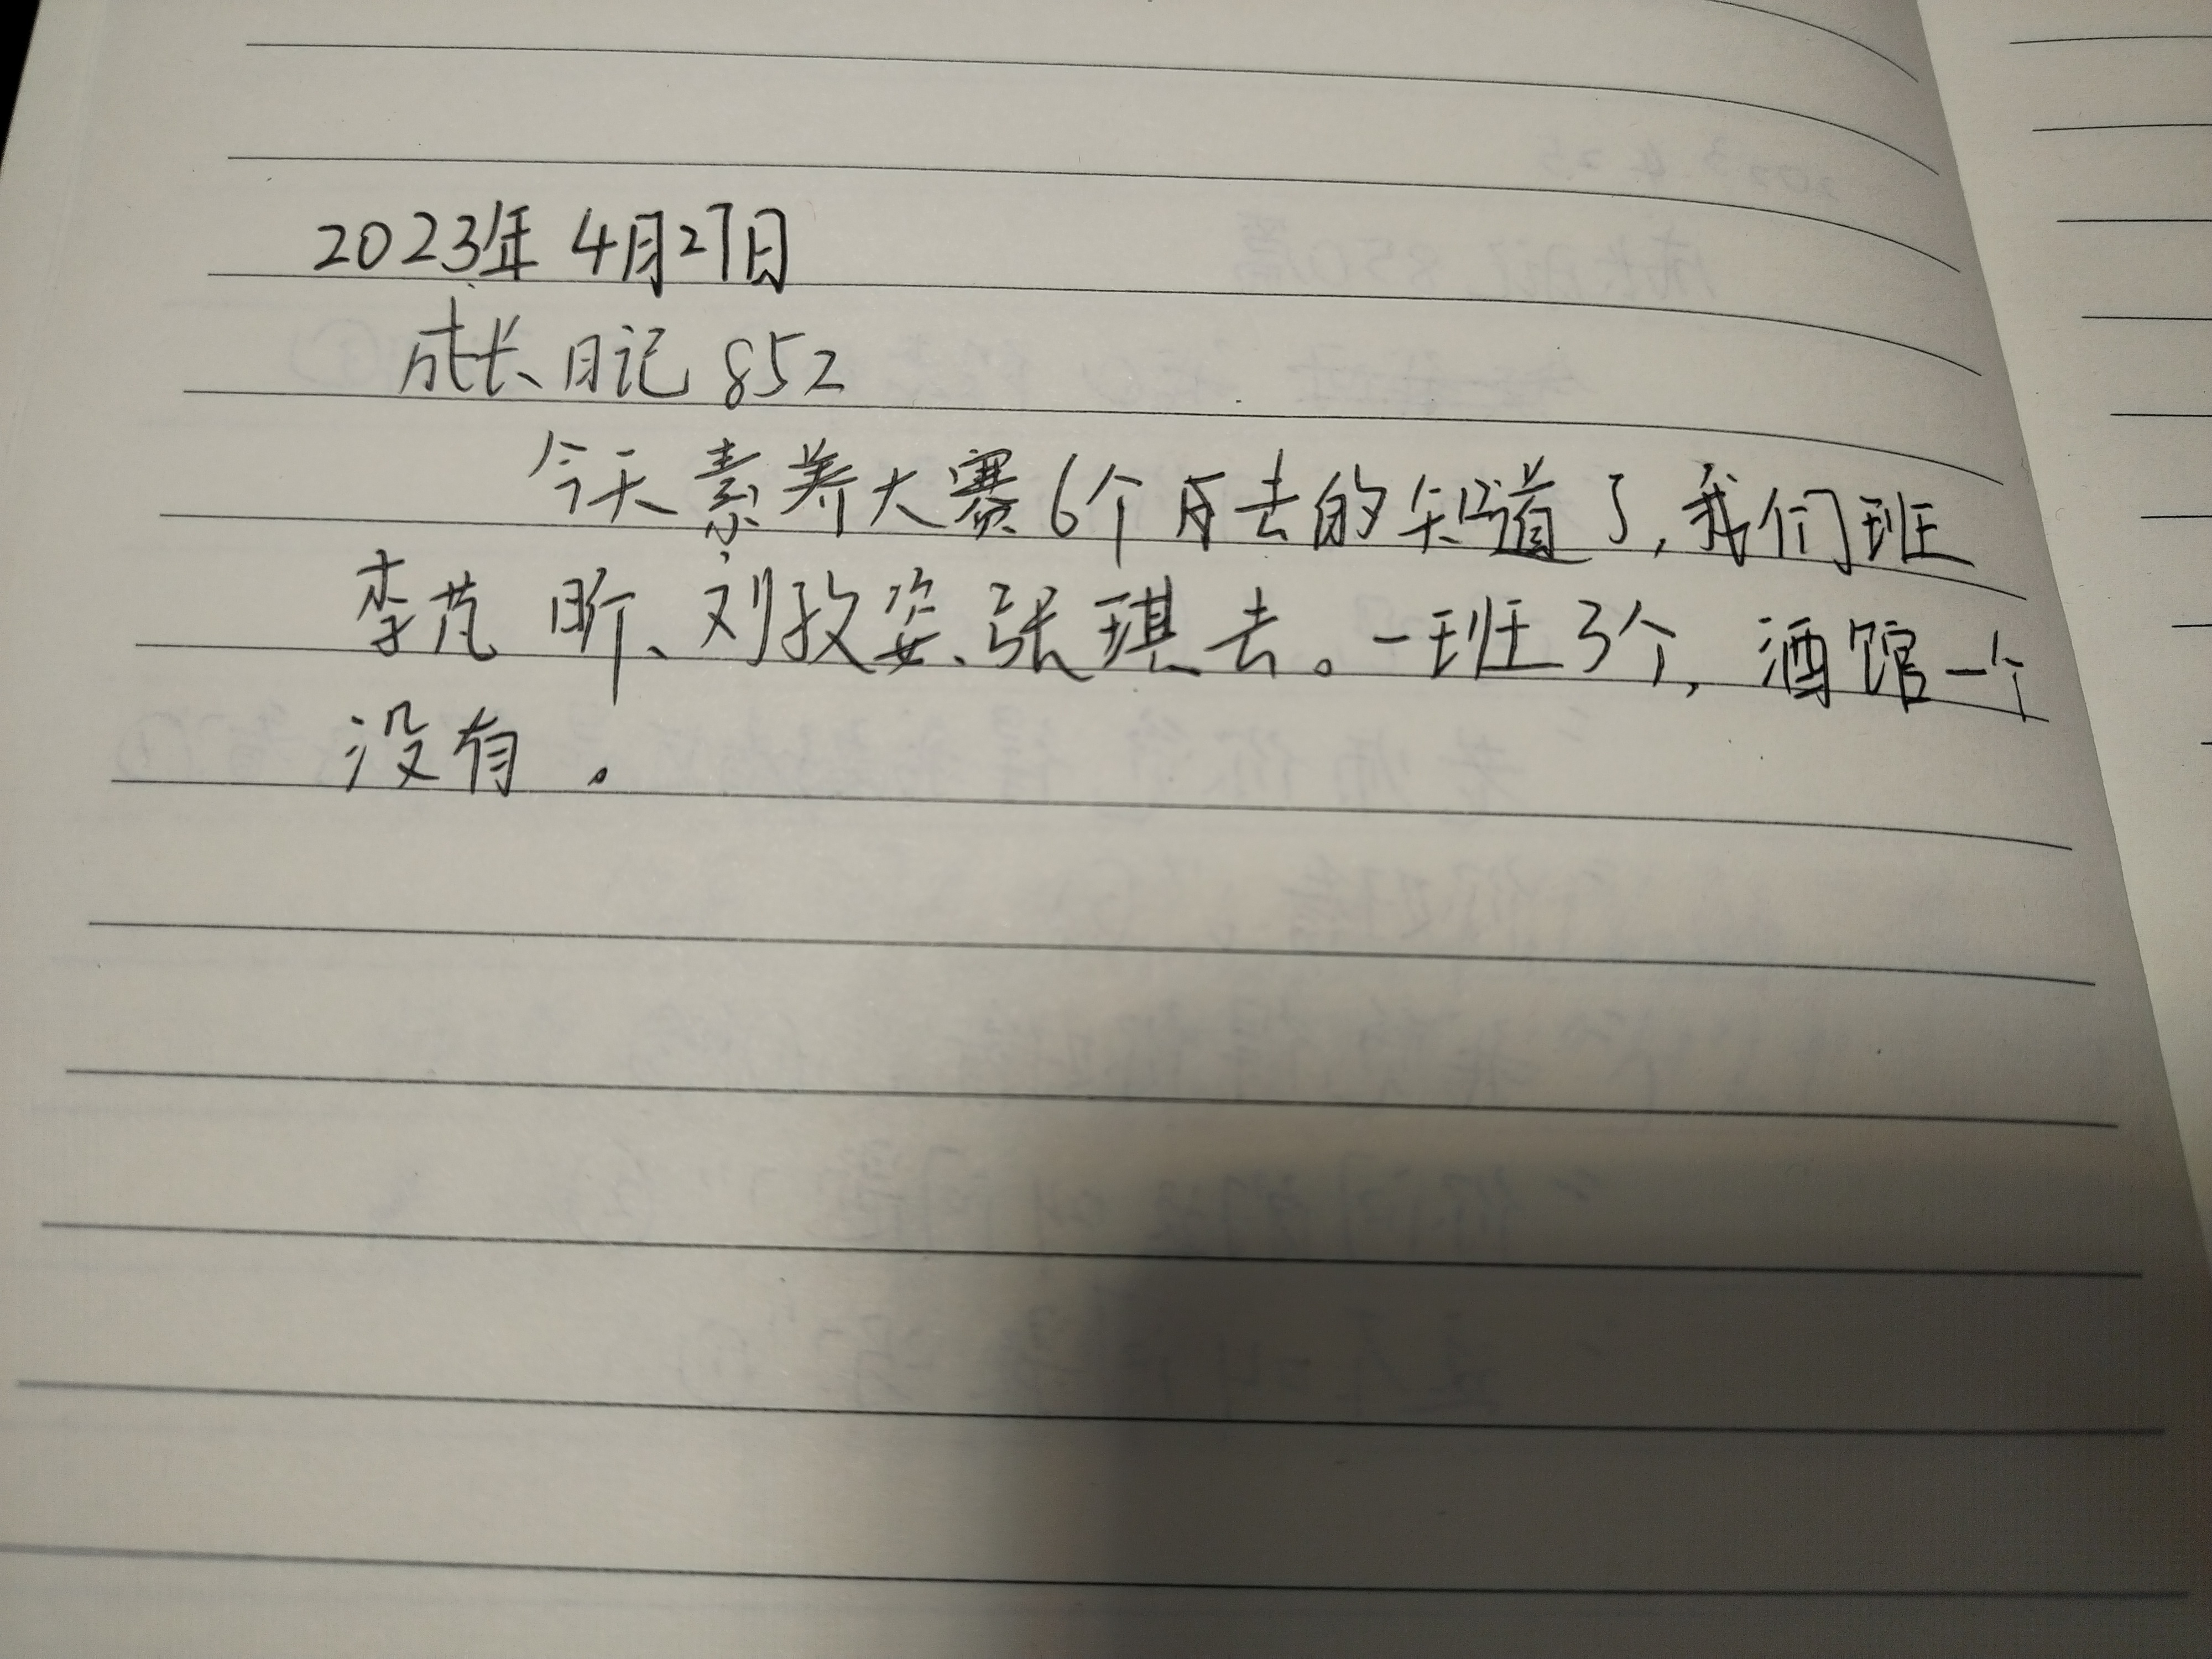 2023年4月27日
成长日记852
今天素养大赛6个月去的知道了,我们班
李芃昕、刘孜姿、张琪去。一班3个,酒馆一个
没有。